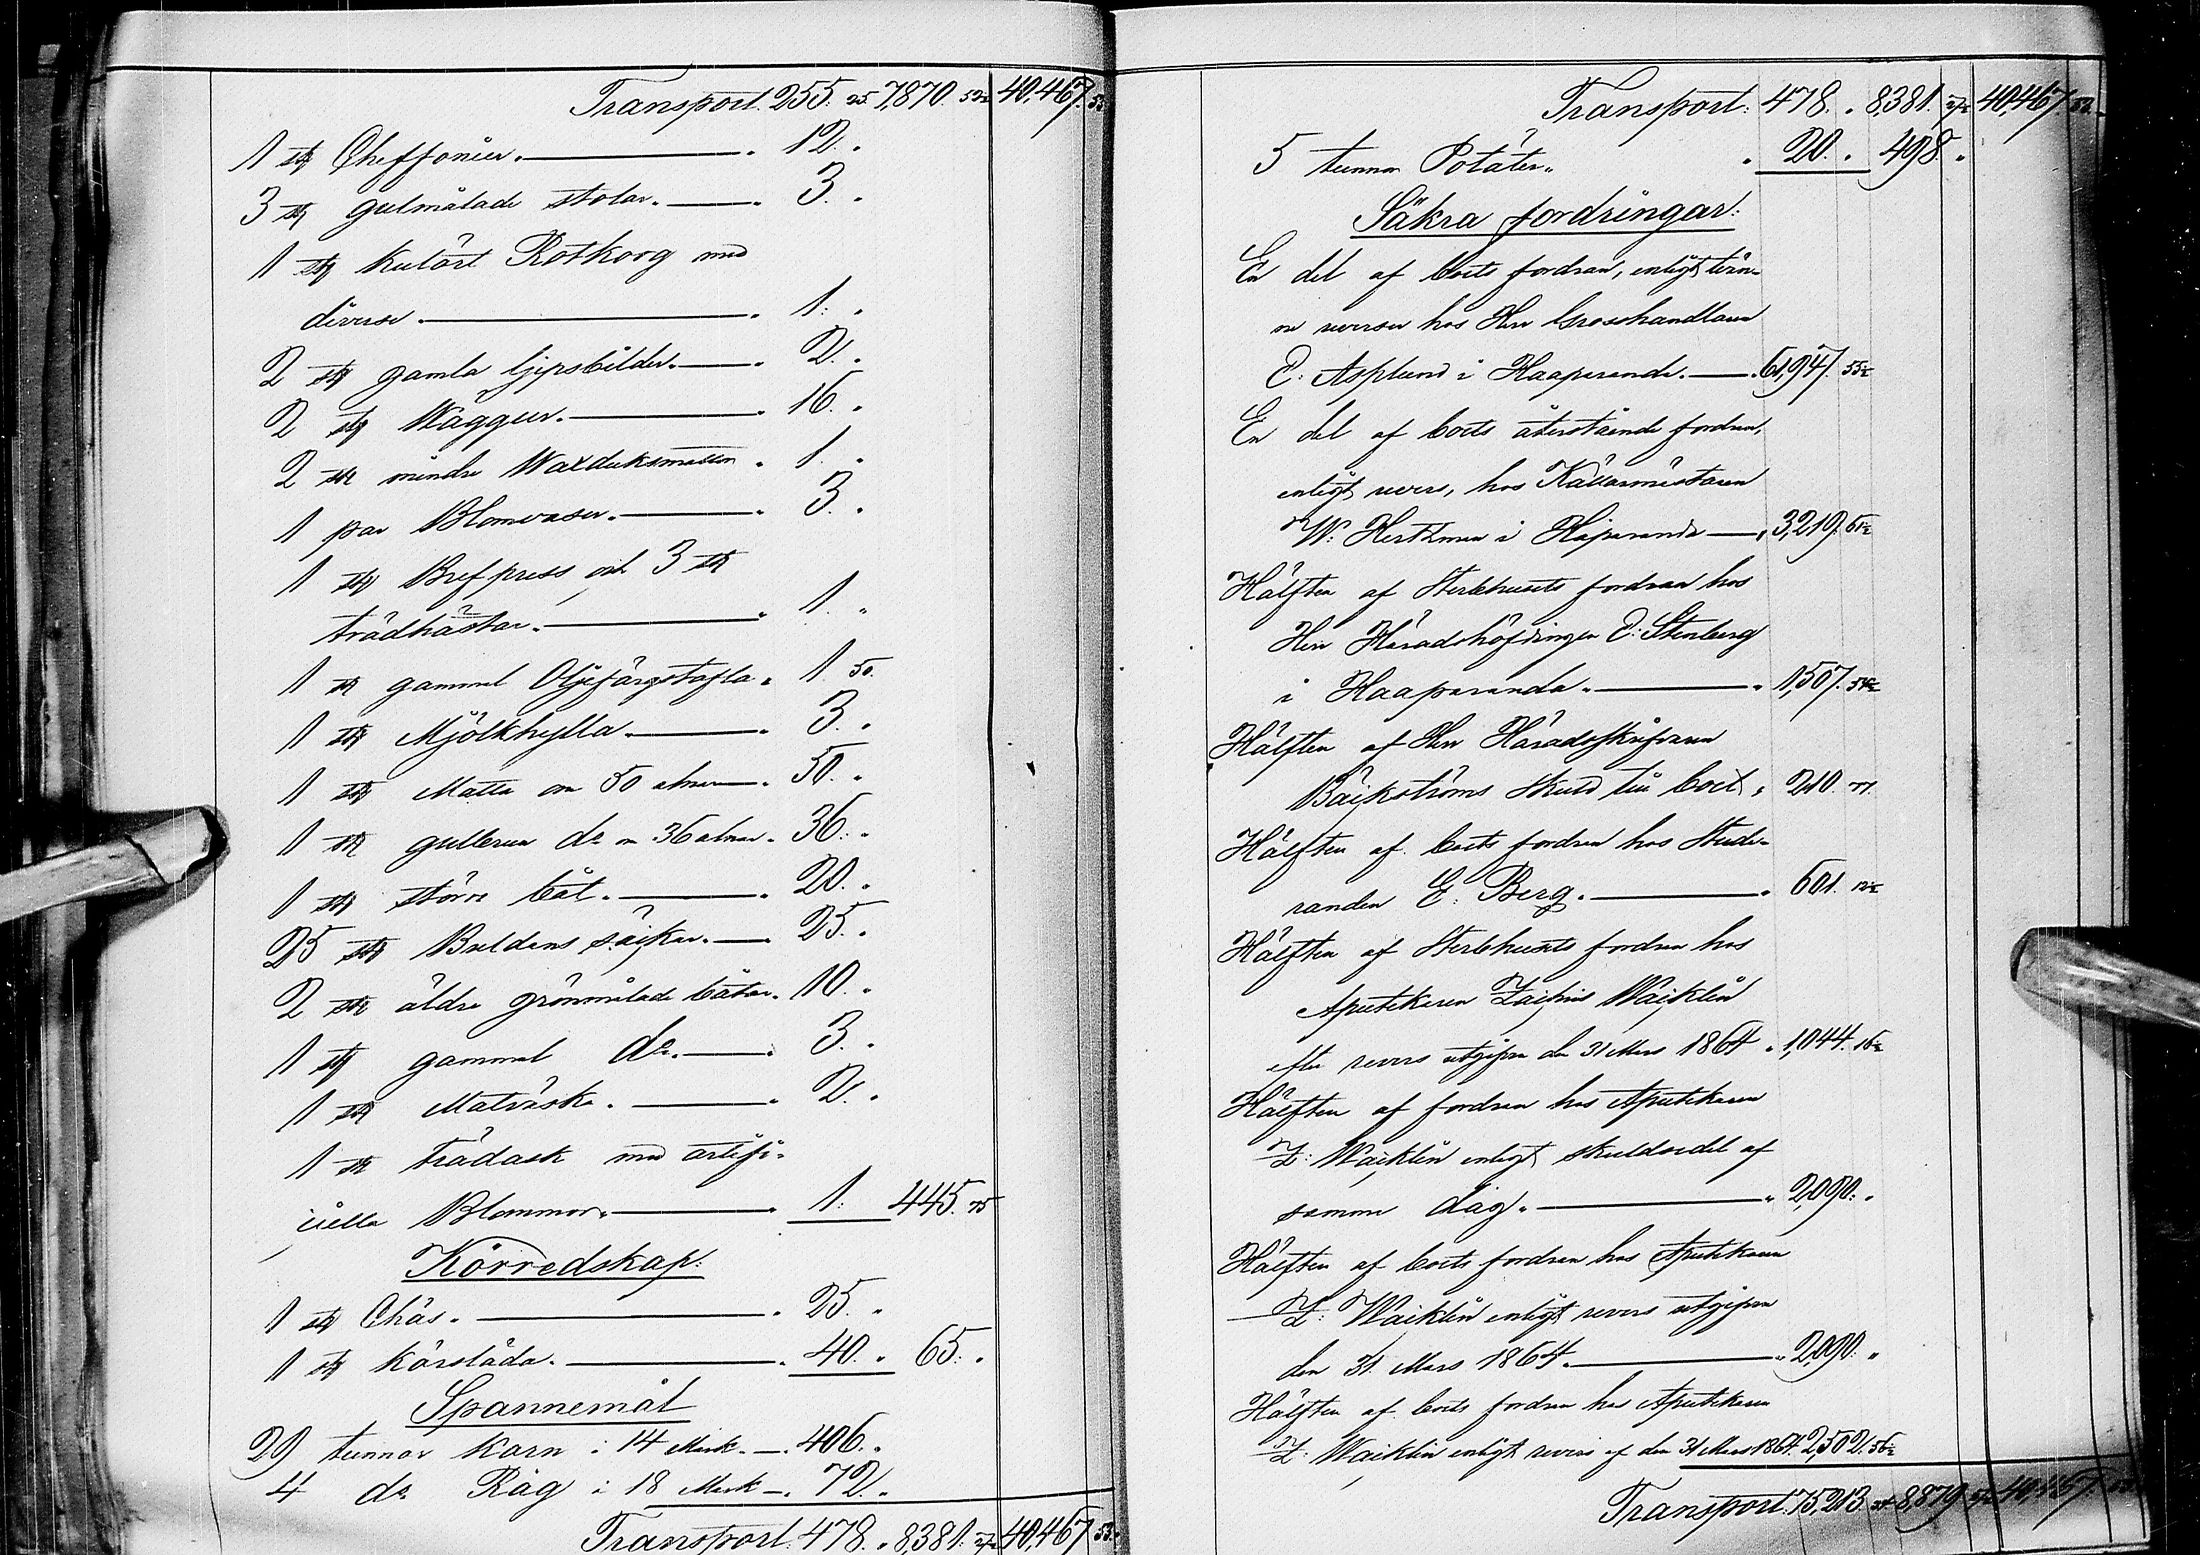 Transport. 255. 25. 7,870. 52½ 40,467. 53.
1 st Cheffonier. 12. "
3 st gulmålade stolar. 3. "
1 st kulört Rotkorg med
diverse 1. "
2 st gamla gipsbilder. 2. "
2 st Väggur. 16. "
2 st mindre Waxduksmattor 1. "
1 par Blomvaser. 3. "
1 st Brefpress, och 3 st
trädhästar. 1. "
1 st gammal Oljefärgstafla. 1. 50.
1 st Mjölkhylla. 3. "
1 st Matta om 50 alnar 50. "
1 st gulbrun do 36 alnar. 36. "
1 st större båt. 20. "
25 st Buldans säckar. 25. "
2 st äldre grönmålade båtar. 10. "
1 st gammal do 3. "
1 st Matväska. 2. "
1 st trädask med artifi-
ciella Blommor. 1. 445. 75
Körredskap.
1 st Chäs. 25. "
1 st kärslåda. 40. " 65. "
Spannemål
29 tunnor Korn i 14 Mark. 406. "
4 do Råg i 18 Mark 72. "
Transport. 478. " 8,381. 27½ 40,467 53.
Transport: 478. " 8,381. 27½ 40,467. 53.
5 tunnor Potäter. 20. " 498. "
Säkra fordringar:
En del af boets fordran, enligt tvän-
ne reverser hos Herr Grosshandlaren
C. Asplund i Haaparanda. 61,947. 55½
En del af boets återstående fordran,
enligt revers, hos Källarmästaren
W. Hertzman i Haparanda 3,219. 51½
Hälften af Sterbhusets fordran hos
Herr Häradshöfdingen C. Stenberg
i Haaparanda. 1,507. 54½
Hälften af Herr Häradsskrifvaren
Bäckströms skuld till boet 210. 77.
Hälften af boets fordran hos Stude-
randen E. Berg. 601. 12½
Hälften af Sterbhusets fordran hos
Apothekaren Waicklin
efter revers utgifven den 31 Mars 1864 1,044. 16½
Hälften af fordran hos Apothekaren
Z. Waicklin enligt skuldsedel af
samma dag. 2,090. "
Hälften af boets fordran hos Apothekaren
Z. Waicklin enligt revers utgifven
den 31 Mars 1864. 2,090. "
Hälften af boets fordran hos Apothekaren
Z. Waicklin enligt revers af den 31 Mars 1864. 2,502. 56½
Transport. 75,213. 8,879 40,467.